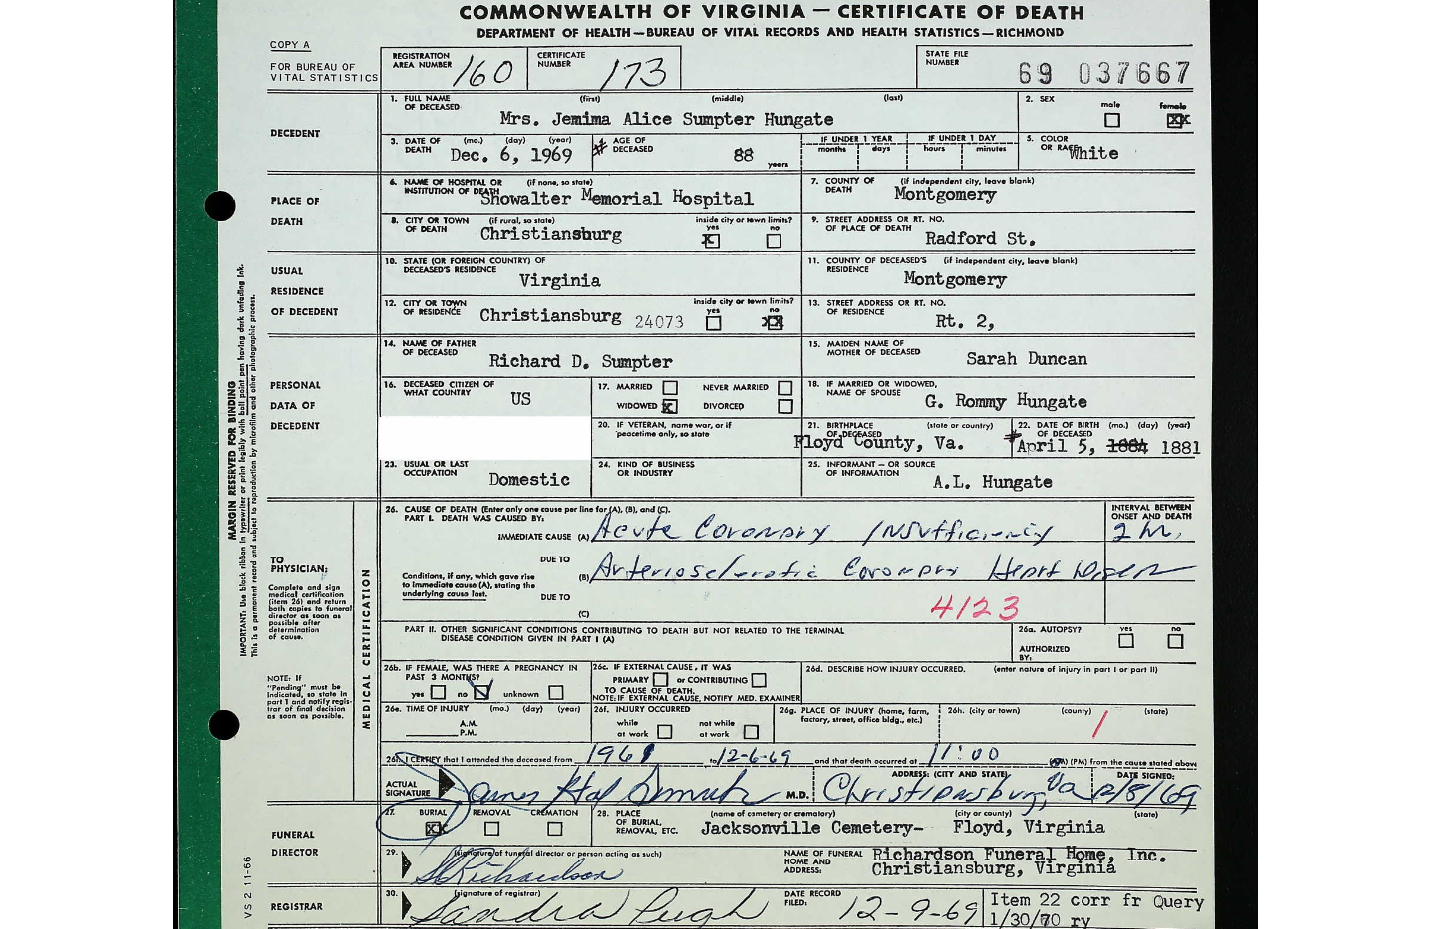 COMMONWEALTH OF VIRGINIA — CERTIFICATE OF DEATH
DEPARTMENT OF HEALTH—BUREAU OF VITAL RECORDS AND HEALTH STATISTICS—RICHMOND
COPY A
FOR BUREAU OF VITAL STATISTICS
REGISTRATION AREA NUMBER 160
CERTIFICATE NUMBER 173
STATE FILE NUMBER 69 037667
DECEDENT
1. FULL NAME OF DECEASED (first) (middle) (last)
Mrs. Jemima Alice Sumpter Hungate
2. SEX male female XX
3. DATE OF DEATH (mo.) (day) (year) Dec. 6, 1969
AGE OF DECEASED 88 years
IF UNDER 1 YEAR months days
IF UNDER 1 DAY hours minutes
5. COLOR OR RACE White
PLACE OF DEATH
6. NAME OF HOSPITAL OR INSTITUTION OF DEATH (if none, so state) Showalter Memorial Hospital
7. COUNTY OF DEATH (if independent city, leave blank) Montgomery
8. CITY OR TOWN OF DEATH (if rural, so state) Christiansburg
inside city or town limits? yes X no
9. STREET ADDRESS OR RT. NO. OF PLACE OF DEATH Radford St.
USUAL RESIDENCE OF DECEDENT
10. STATE (OR FOREIGN COUNTRY) OF DECEASED'S RESIDENCE Virginia
11. COUNTY OF DECEASED'S RESIDENCE (if independent city, leave blank) Montgomery
12. CITY OR TOWN OF RESIDENCE Christiansburg 24073
inside city or town limits? yes no XX
13. STREET ADDRESS OR RT. NO. OF RESIDENCE Rt. 2,
PERSONAL DATA OF DECEDENT
14. NAME OF FATHER OF DECEASED Richard D. Sumpter
15. MAIDEN NAME OF MOTHER OF DECEASED Sarah Duncan
16. DECEASED CITIZEN OF WHAT COUNTRY US
17. MARRIED NEVER MARRIED
WIDOWED X DIVORCED
18. IF MARRIED OR WIDOWED, NAME OF SPOUSE G. Rommy Hungate
20. IF VETERAN, name war, or if peacetime only, so state
21. BIRTHPLACE OF DECEASED (state or country) Floyd County, Va.
22. DATE OF BIRTH OF DECEASED (mo.) (day) (year) April 5, 1884 1881
23. USUAL OR LAST OCCUPATION Domestic
24. KIND OF BUSINESS OR INDUSTRY
25. INFORMANT — OR SOURCE OF INFORMATION A.L. Hungate
MARGIN RESERVED FOR BINDING
IMPORTANT: Use black ribbon in typewriter or print legibly with ball point pen having dark unfading ink.
This is a permanent record and subject to reproduction by microfilm and other photographic process.
TO PHYSICIAN:
Complete and sign medical certification (item 26) and return both copies to funeral director as soon as possible after determination of cause.
NOTE: If "Pending" must be indicated, so state in part 1 and notify registrar of final decision as soon as possible.
MEDICAL CERTIFICATION
26. CAUSE OF DEATH (Enter only one cause per line for (A), (B), and (C).
PART I. DEATH WAS CAUSED BY:
INTERVAL BETWEEN ONSET AND DEATH
IMMEDIATE CAUSE (A) Acute Coronary Insufficiency
DUE TO
Conditions, if any, which gave rise to immediate cause (A), stating the underlying cause last.
(B) Arteriosclerotic Coronary Heart Disease
DUE TO
(C)
4123
PART II. OTHER SIGNIFICANT CONDITIONS CONTRIBUTING TO DEATH BUT NOT RELATED TO THE TERMINAL DISEASE CONDITION GIVEN IN PART I (A)
26a. AUTOPSY? yes no
AUTHORIZED BY:
26b. IF FEMALE, WAS THERE A PREGNANCY IN PAST 3 MONTHS?
yes no unknown
26c. IF EXTERNAL CAUSE, IT WAS
PRIMARY or CONTRIBUTING
TO CAUSE OF DEATH.
NOTE: IF EXTERNAL CAUSE, NOTIFY MED. EXAMINER
26d. DESCRIBE HOW INJURY OCCURRED. (enter nature of injury in part I or part II)
26e. TIME OF INJURY (mo.) (day) (year)
A.M.
P.M.
26f. INJURY OCCURRED
while at work not while at work
26g. PLACE OF INJURY (home, farm, factory, street, office bldg., etc.)
26h. (city or town) (county) (state)
26h. I CERTIFY that I attended the deceased from to 12-6-69 and that death occurred at 11:00 (AM) (PM) from the cause stated above
ACTUAL SIGNATURE M.D.
ADDRESS: (CITY AND STATE) Christiansburg, Va
DATE SIGNED: 12/8/69
FUNERAL DIRECTOR
27. BURIAL XX REMOVAL CREMATION
28. PLACE OF BURIAL, REMOVAL, ETC. (name of cemetery or crematory) (city or county) (state)
Jacksonville Cemetery— Floyd, Virginia
29. (signature of funeral director or person acting as such)
Richardson
NAME OF FUNERAL HOME AND ADDRESS: Richardson Funeral Home, Inc.
Christiansburg, Virginia
REGISTRAR
30. (signature of registrar)
Sandra Pugh
DATE RECORD FILED: 12-9-69
Item 22 corr fr Query
1/30/70 ry
VS 2 11-66